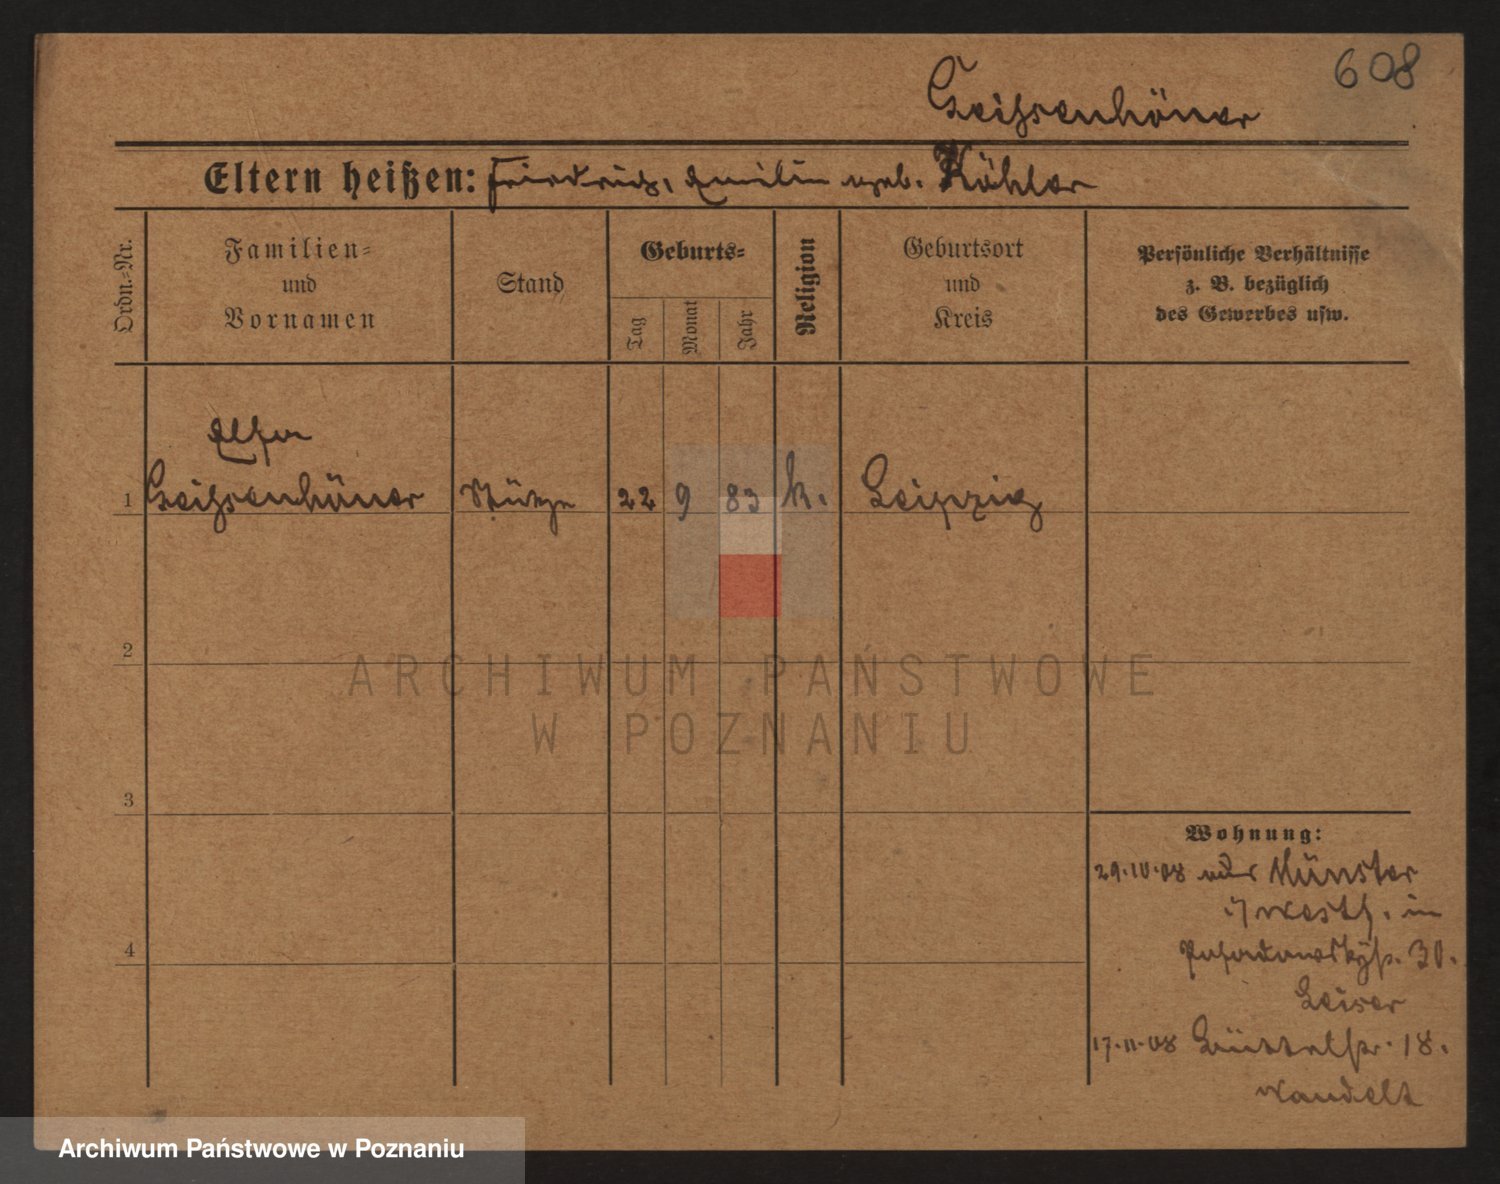 608
Geissenhöner
Eltern heißen: Friedrich, Emilie geb. Köhler
Ordn.-Nr.
Familien-
und
Vornamen
Stand
Geburts-
Tag
Monat
Jahr
Religion
Geburtsort
und
Kreis
Persönliche Verhältnisse
z. B. bezüglich
des Gewerbes usw.
Else
1 Geissenhöner Stütze 22 9 83 k. Leipzig
2
ARCHIWUM PAŃSTWOWE
W POZNANIU
3
Wohnung:
29.10.08 aus Münster
i/Westf. in
4
Posadowskystr. 30.
Leiser
17.11.08 18.
Wandelt
Archiwum Państwowe w Poznaniu